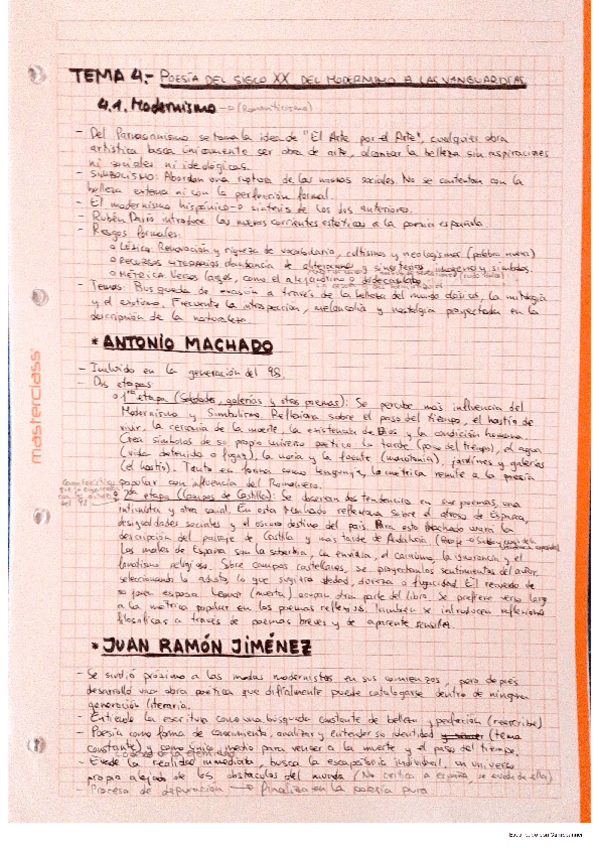 TEMA 4.- POESÍA DEL SIGLO XX DEL MODERNISMO A LAS VANGUARDIAS
4.1. Modernismo (Romanticismo)
- Del Parnasianismo se toma la idea de "El Arte por el Arte", cualquier obra
artística busca únicamente ser obra de arte, alcanzar la belleza sin aspiraciones
ni sociales ni ideológicas.
- SIMBOLISMO: Abordan una ruptura de las normas sociales. No se contentan con la
belleza externa ni con la perfección formal.
- El modernismo hispánico síntesis de los dos anteriores.
- Rubén Darío introduce las nuevas corrientes estéticas a la poesía española.
- Rasgos formales:
LÉXICO: Renovación y riqueza de vocabulario, cultismos y neologismos (palabra nueva)
RECURSOS LITERARIOS abundancia de aliteraciones y sinestesias, imágenes y símbolos.
MÉTRICA Versos largos, como el alejandrino o dodecasílabo
- Temas: Búsqueda de evasión a través de la belleza del mundo clásico, la mitología
y el erotismo. Frecuente la introspección, melancolía y nostalgia proyectada en la
descripción de la naturaleza.
* ANTONIO MACHADO
- Incluido en la generación del 98.
- Dos etapas
1ª etapa (Soledades, galerías y otros poemas): Se percibe más influencia del
Modernismo y Simbolismo. Reflexiona sobre el paso del tiempo, el hastío de
vivir, la cercanía de la muerte, la existencia de Dios y la condición humana.
Crea símbolos de su propio universo poético la tarde (paso del tiempo), el agua
(vida detenida o fugaz), la noria y la fuente (monotonía), jardines y galerías
(el hastío). Tanto en forma como lenguaje, la métrica remite a la poesía
popular con influencia del Romancero.
2ª etapa (Campos de Castilla): Se observan dos tendencias en sus poemas, una
intimista y otra social. En esta Machado reflexiona sobre el atraso de España,
desigualdades sociales y el oscuro destino del país. Para esto Machado usará la
descripción del paisaje de Castilla y más tarde de Andalucía
Los males de España son la soberbia, la envidia, el cainismo, la ignorancia y el
fanatismo religioso. Sobre campos castellanos, se proyectan los sentimientos del autor
seleccionando lo adusto, lo que sugiera soledad, dureza o fugacidad El recuerdo de
su joven esposa Leonor (muerta) ocupan otra parte del libro. Se prefiere verso largo
a la métrica popular en los poemas reflexivos. También se introducen reflexiones
filosóficas a través de poemas breves y de aparente sencillez.
* JUAN RAMÓN JIMÉNEZ
- Se sintió próximo a las modas modernistas en sus comienzos, pero después
desarrolló una obra poética que difícilmente puede catalogarse dentro de ninguna
generación literaria.
- Entiende la escritura como una búsqueda constante de belleza y perfección (reescribe)
- Poesía como forma de conocimiento, analizar y entender su identidad (tema
constante) y como único medio para vencer a la muerte y el paso del tiempo.
- Evade la realidad inmediata, busca la escapatoria individual, un universo
propio alejado de los obstáculos del mundo (No critica a españa, se evade de ella)
- Proceso de depuración → finaliza en la poesía pura
masterclass